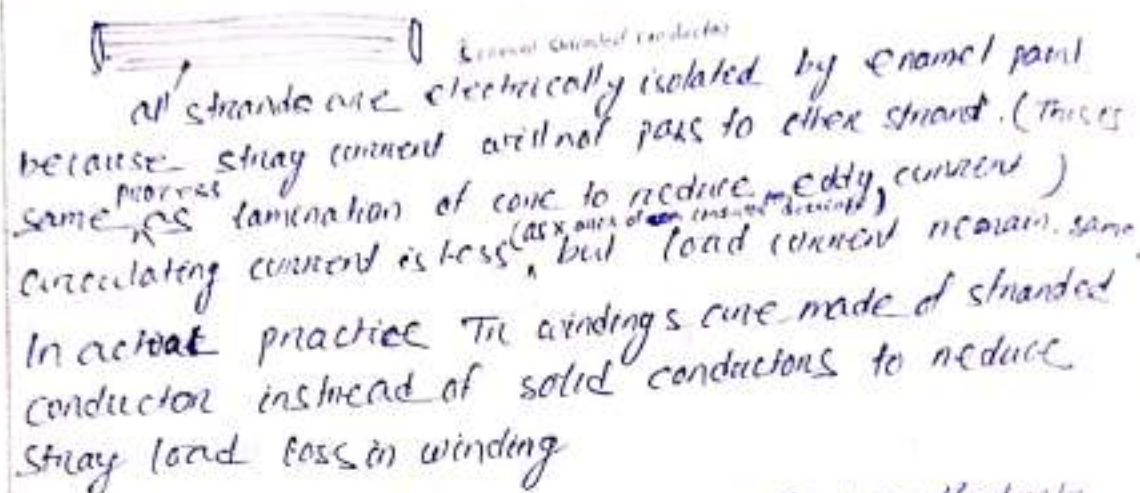 stranded conductor
all strands are electrically isolated by enamel paint
because stray current will not pass to other strand. (This is
same process as lamination of core to reduce eddy current)
circulating current is less (as x area of decreases), but load current remain same,
In actual practice Tr windings are made of stranded
conductor instead of solid conductors to reduce
stray load loss in winding